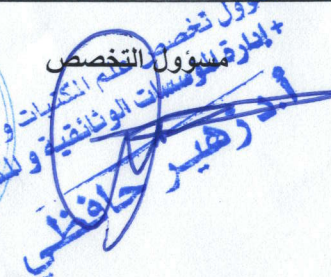 مسؤول التخصص
ؤول تخصص علم المكتبات و
+ إدارة المؤسسات الوثائقية و
أ.د زهير حافظي